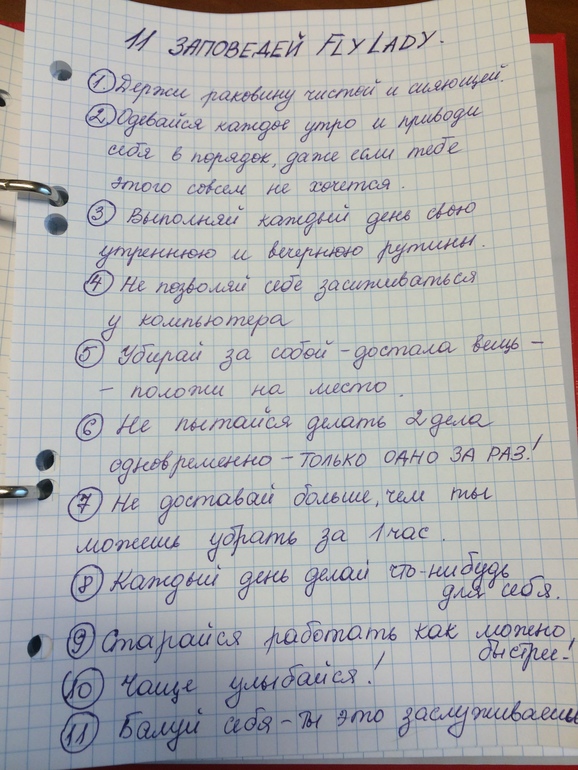 11 ЗАПОВЕДЕЙ FLYLADY.
1 Держи раковину чистый и сияющей.
2 Одевайся каждое утро и приводи
себя в порядок, даже если тебе
этого совсем не хочется.
3 Выполняй каждый день свою
утреннюю и вечернюю рутины.
4 Не позволяй себе засиживаться
у компьютера
5 Убирай за собой - достала вещь -
- положи на место.
6 Не пытайся делать 2 дела
одновременно - ТОЛЬКО ОДНО ЗА РАЗ!
7 Не доставай больше, чем ты
можешь убрать за 1 час.
8 Каждый день делай что-нибудь
для себя.
9 Старайся работать как можно
быстрее!
10 Чаще улыбайся!
11 Балуй себя - ты это заслуживаешь